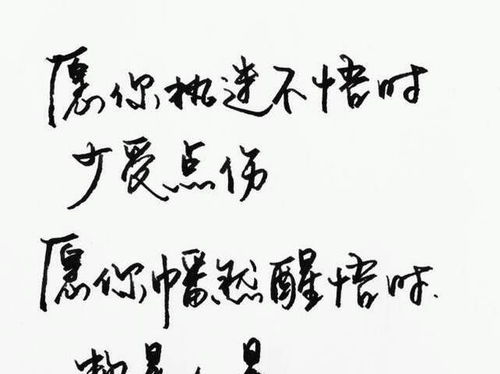 愿你执迷不悟时
少受点伤
愿你幡然醒悟时